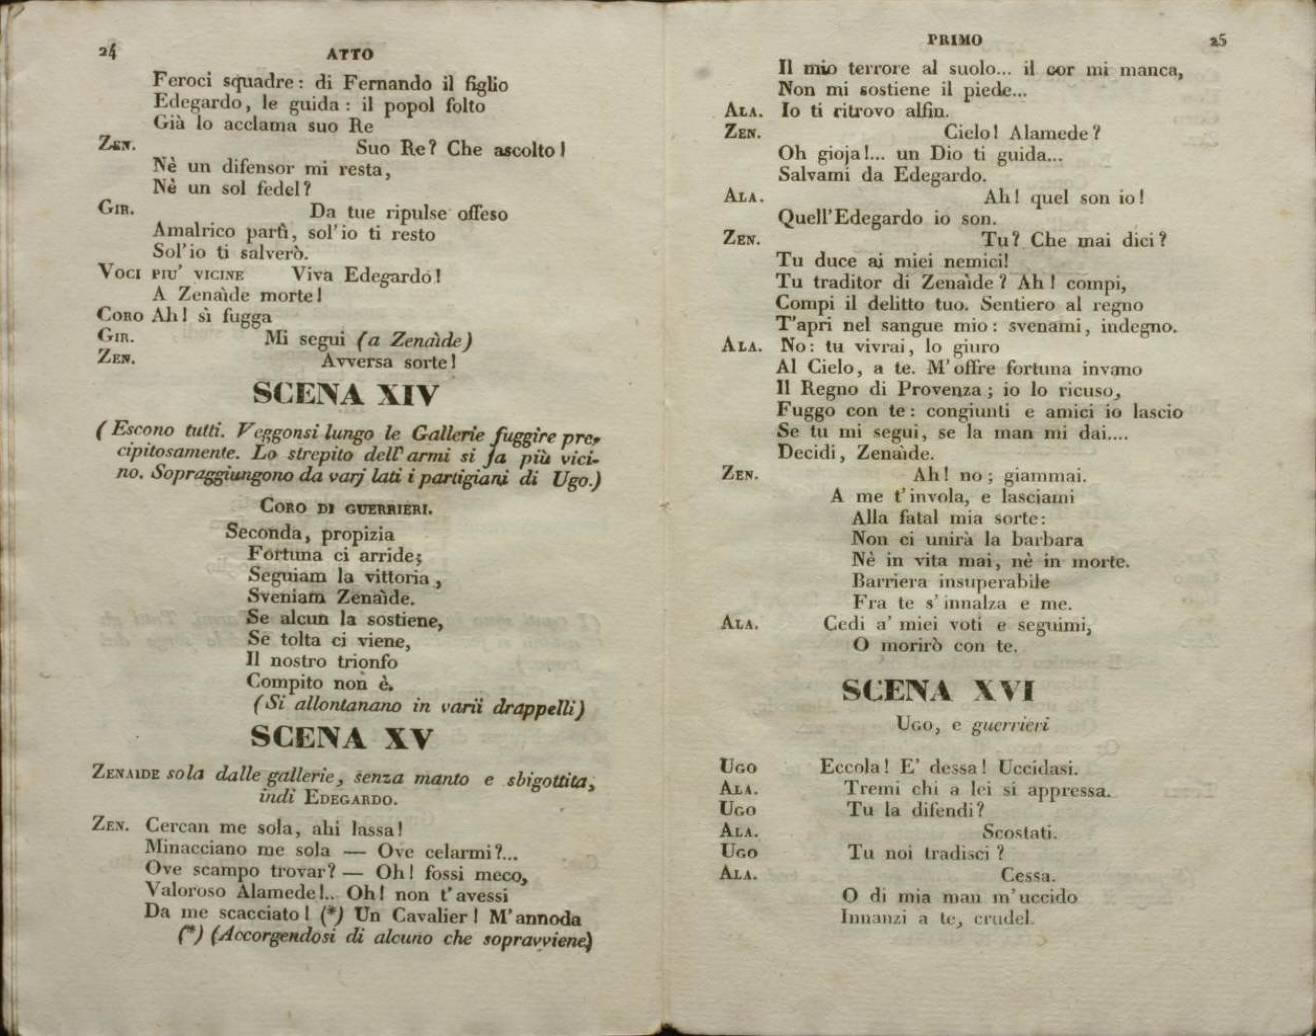 24
ATTO
Feroci squadre: di Fernando il figlio
Edegardo, le guida: il popol folto
Già lo acclama suo Re
ZEN. Suo Re? Che ascolto!
Nè un difensor mi resta,
Nè un sol fedel?
GIR. Da tue ripulse offeso
Amalrico partì, sol'io ti resto
Sol'io ti salverò.
VOCI PIU' VICINE Viva Edegardo!
A Zenaìde morte!
CORO Ah! sì fugga
GIR. Mi segui (a Zenaìde)
ZEN. Avversa sorte!
SCENA XIV
(Escono tutti. Veggonsi lungo le Gallerie fuggire pre-
cipitosamente. Lo strepito dell'armi si fa più vici-
no. Sopraggiungono da varj lati i partigiani di Ugo.)
CORO DI GUERRIERI.
Seconda, propizia
Fortuna ci arride;
Seguiam la vittoria,
Sveniam Zenaìde.
Se alcun la sostiene,
Se tolta ci viene,
Il nostro trionfo
Compito non è.
(Si allontanano in varii drappelli)
SCENA XV
ZENAIDE sola dalle gallerie, senza manto e sbigottita,
indi EDEGARDO.
ZEN. Cercan me sola, ahi lassa!
Minacciano me sola — Ove celarmi?...
Ove scampo trovar? — Oh! fossi meco,
Valoroso Alamede!.. Oh! non t'avessi
Da me scacciato! (*) Un Cavalier! M'annoda
(*) (Accorgendosi di alcuno che sopravviene)
PRIMO
25
Il mio terrore al suolo... il cor mi manca,
Non mi sostiene il piede...
ALA. Io ti ritrovo alfin.
ZEN. Cielo! Alamede?
Oh gioja!... un Dio ti guida...
Salvami da Edegardo.
ALA. Ah! quel son io!
Quell'Edegardo io son.
ZEN. Tu? Che mai dici?
Tu duce ai miei nemici!
Tu traditor di Zenaìde? Ah! compi,
Compi il delitto tuo. Sentiero al regno
T'apri nel sangue mio: svenami, indegno.
ALA. No: tu vivrai, lo giuro
Al Cielo, a te. M'offre fortuna invano
Il Regno di Provenza; io lo ricuso,
Fuggo con te: congiunti e amici io lascio
Se tu mi segui, se la man mi dai....
Decidi, Zenaìde.
ZEN. Ah! no; giammai.
A me t'invola, e lasciami
Alla fatal mia sorte:
Non ci unirà la barbara
Nè in vita mai, nè in morte.
Barriera insuperabile
Fra te s'innalza e me.
ALA. Cedi a' miei voti e seguimi,
O morirò con te.
SCENA XVI
UGO, e guerrieri
UGO Eccola! E' dessa! Uccidasi.
ALA. Tremi chi a lei si appressa.
UGO Tu la difendi?
ALA. Scostati.
UGO Tu noi tradisci?
ALA. Cessa.
O di mia man m'uccido
Innanzi a te, crudel.